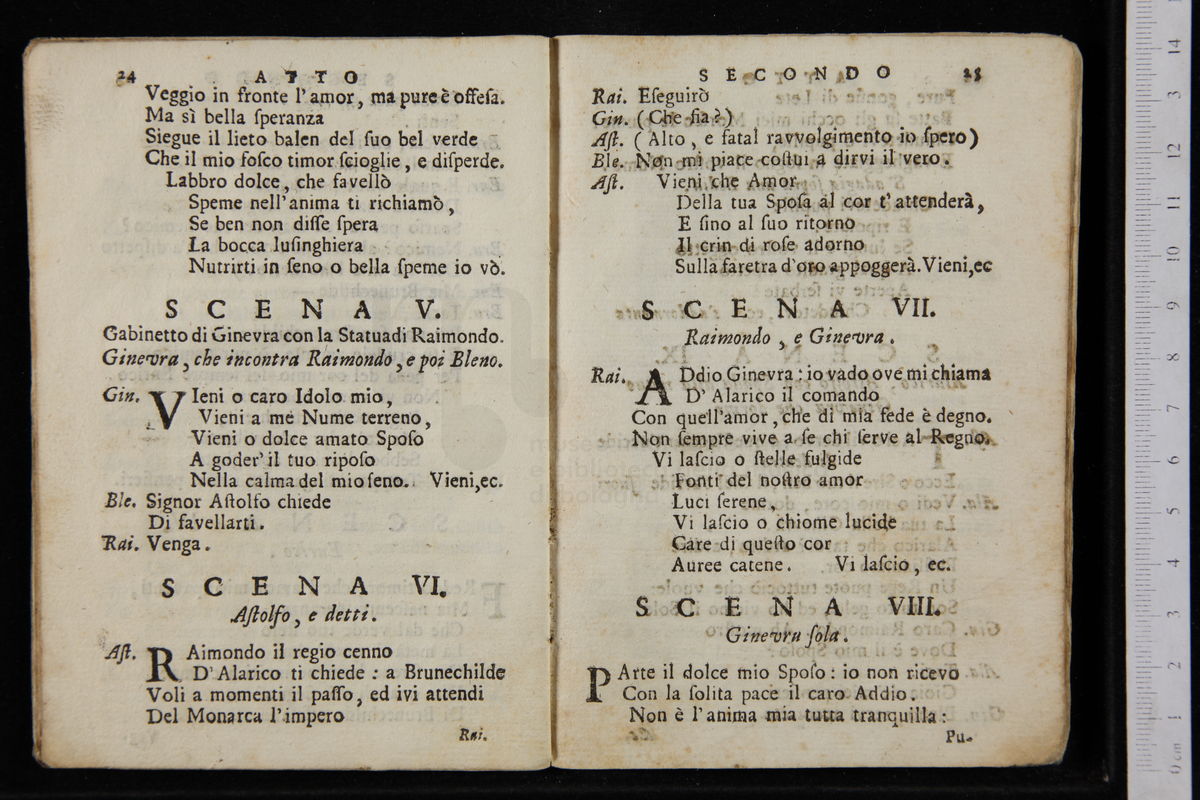 24 ATTO
Veggio in fronte l'amor, ma pure è offeſa.
Ma sì bella ſperanza
Siegue il lieto balen del ſuo bel verde
Che il mio foſco timor ſcioglie, e diſperde.
Labbro dolce, che favellò
Speme nell'anima ti richiamò,
Se ben non diſſe ſpera
La bocca luſinghiera
Nutrirti in ſeno o bella ſpeme io vò.
SCENA V.
Gabinetto di Ginevra con la Statua di Raimondo.
Ginevra, che incontra Raimondo, e poi Bleno.
Gin. VIeni o caro Idolo mio,
Vieni a me Nume terreno,
Vieni o dolce amato Spoſo
A goder' il tuo ripoſo
Nella calma del mio ſeno. Vieni,ec.
Ble. Signor Aſtolfo chiede
Di favellarti.
Rai. Venga.
SCENA VI.
Aſtolfo, e detti.
Aſt. RAimondo il regio cenno
D'Alarico ti chiede : a Brunechilde
Voli a momenti il paſſo, ed ivi attendi
Del Monarca l'impero
Rai.
SECONDO 25
Rai. Eſeguirò
Gin. (Che fia?)
Aſt. (Alto, e fatal ravvolgimento io ſpero)
Ble. Non mi piace coſtui a dirvi il vero.
Aſt. Vieni che Amor
Della tua Spoſa al cor t'attenderà,
E ſino al ſuo ritorno
Il crin di roſe adorno
Sulla faretra d'oro appoggerà. Vieni,ec
SCENA VII.
Raimondo, e Ginevra.
Rai. ADdio Ginevra : io vado ove mi chiama
D' Alarico il comando
Con quell'amor, che di mia fede è degno.
Non ſempre vive a ſe chi ſerve al Regno.
Vi laſcio o ſtelle fulgide
Fonti del noſtro amor
Luci ſerene,
Vi laſcio o chiome lucide
Care di queſto cor
Auree catene. Vi laſcio, ec.
SCENA VIII.
Ginevra ſola.
PArte il dolce mio Spoſo : io non ricevo
Con la ſolita pace il caro Addio.
Non è l'anima mia tutta tranquilla :
Pu-